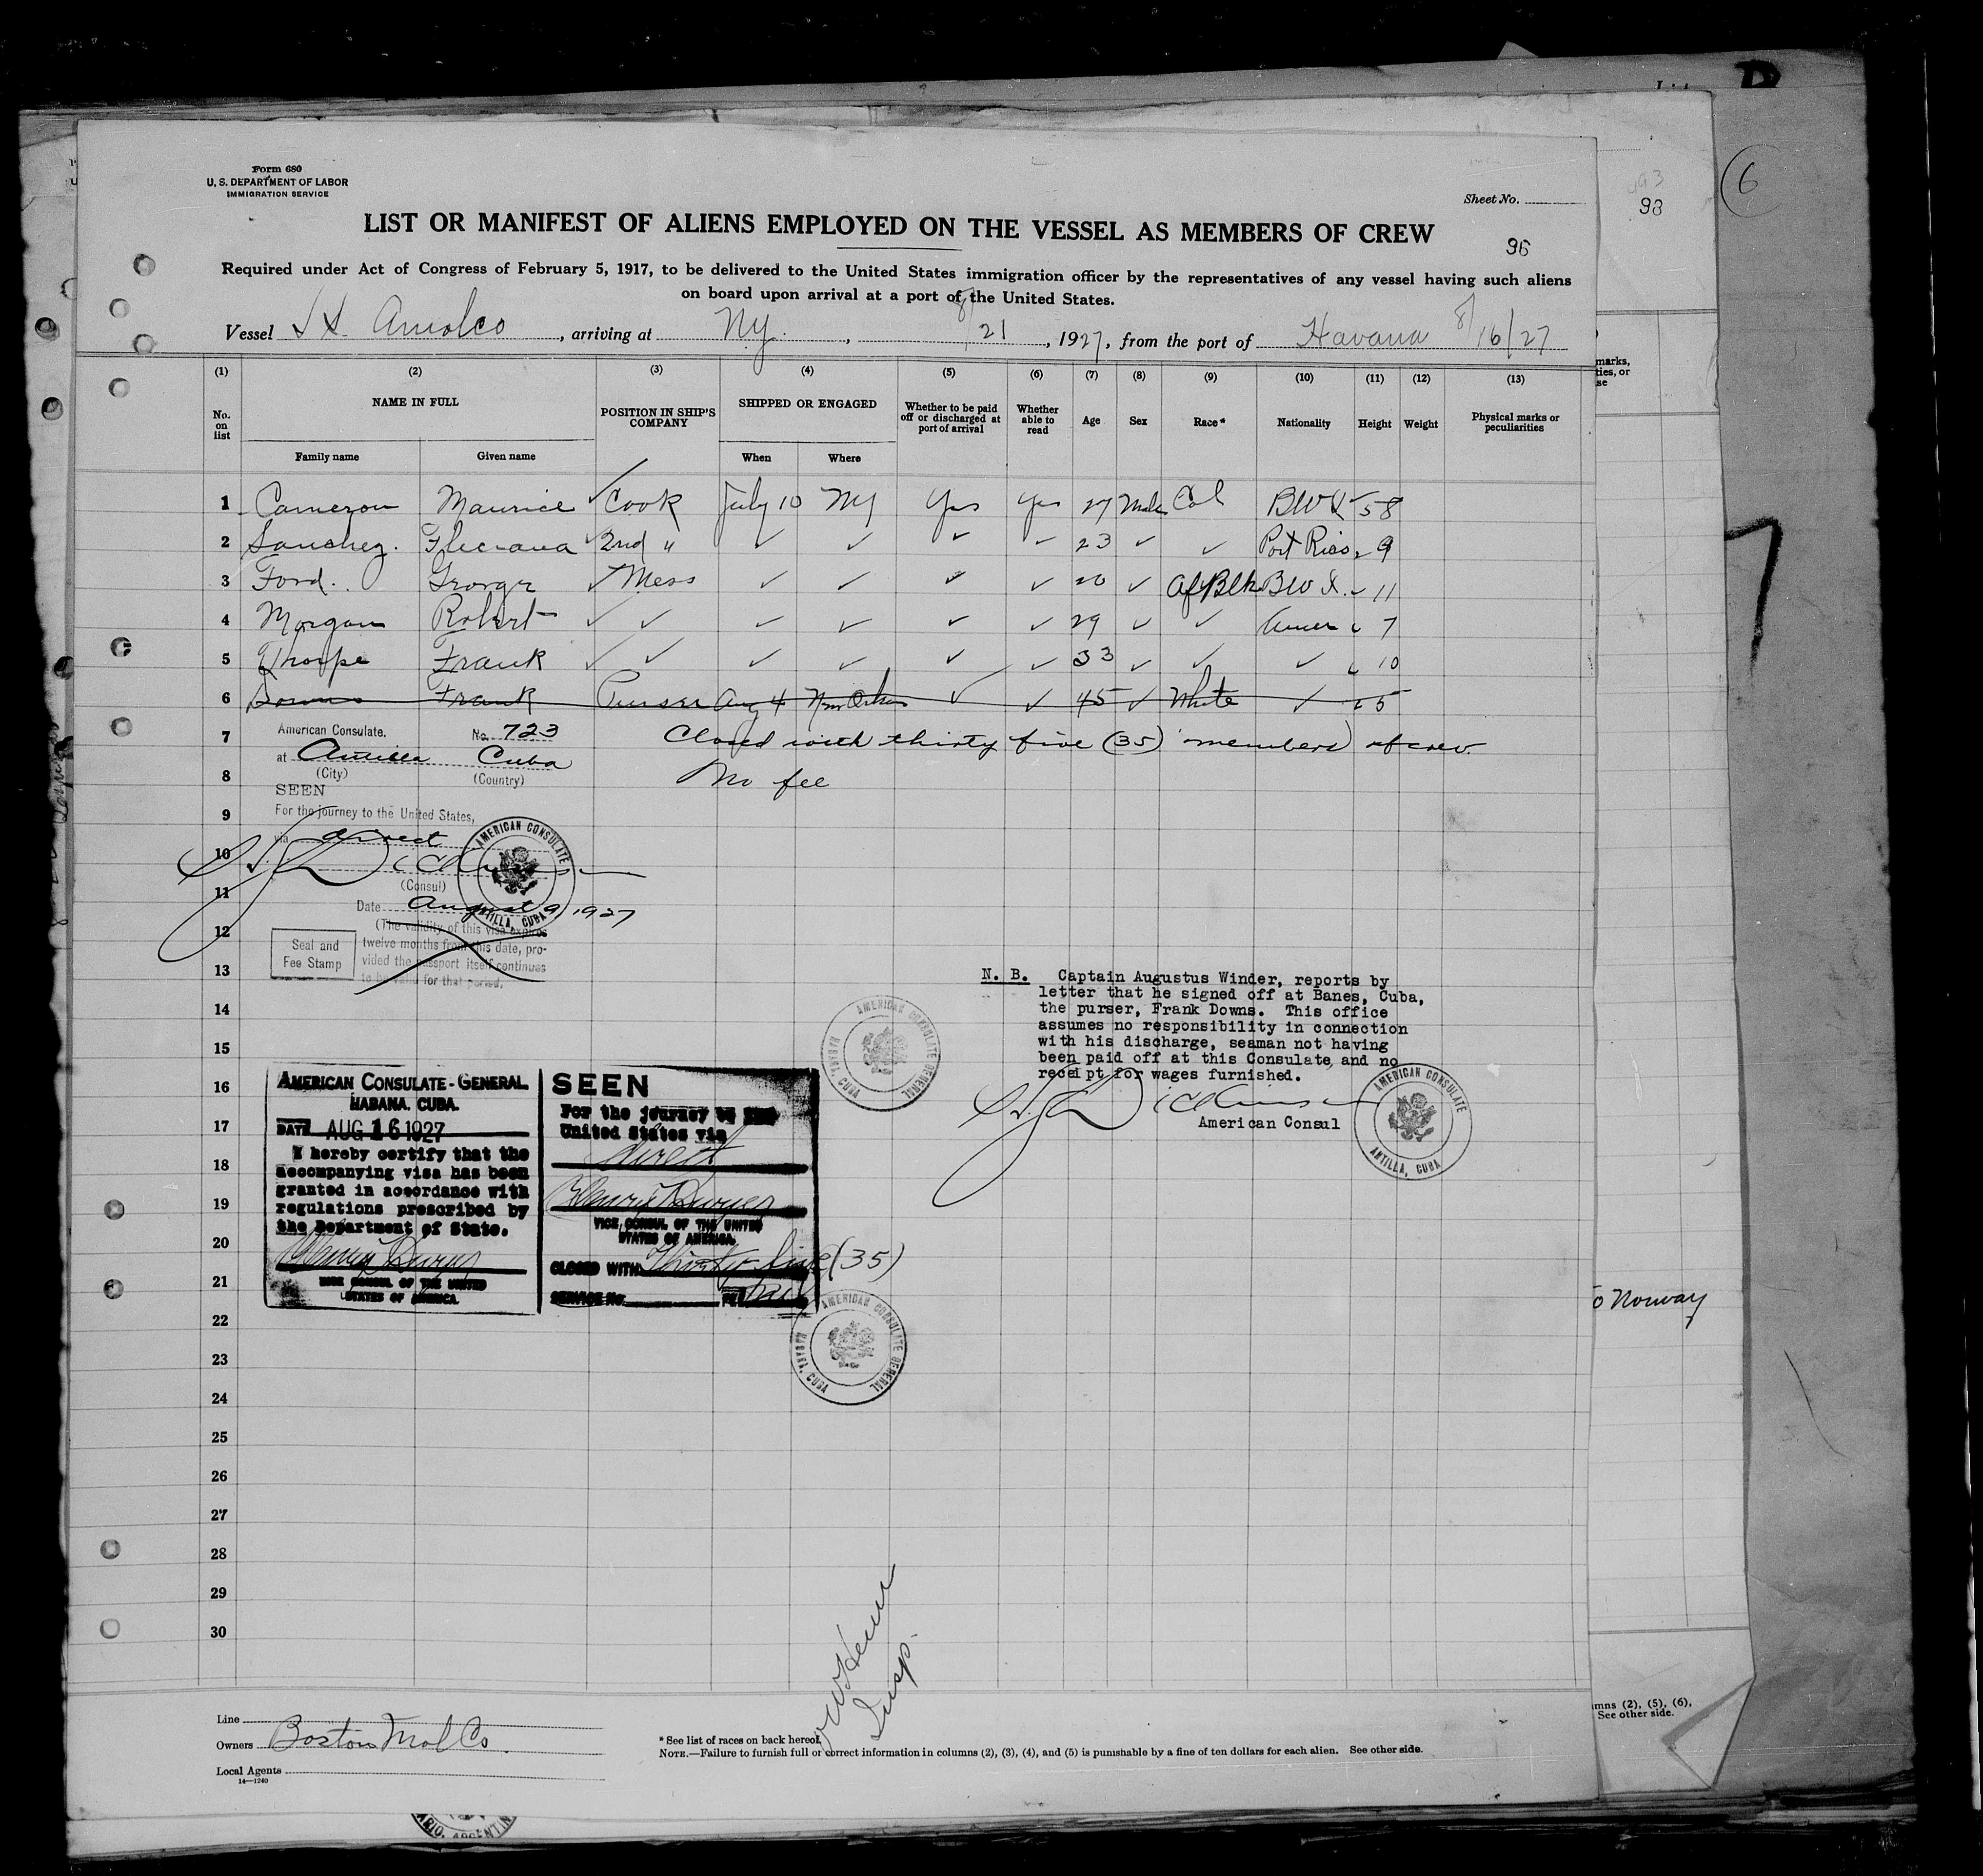 Form 680
U. S. DEPARTMENT OF LABOR
IMMIGRATION SERVICE
Sheet No.
LIST OR MANIFEST OF ALIENS EMPLOYED ON THE VESSEL AS MEMBERS OF CREW
96
93
6
Required under Act of Congress of February 5, 1917, to be delivered to the United States immigration officer by the representatives of any vessel having such aliens
on board upon arrival at a port of the United States.
Vessel SS. Amolco, arriving at Ny., 8/21, 1927, from the port of Havana 8/16/27
(1) (2) (3) (4) (5) (6) (7) (8) (9) (10) (11) (12) (13)
No. on list NAME IN FULL POSITION IN SHIP'S COMPANY SHIPPED OR ENGAGED Whether to be paid off or discharged at port of arrival Whether able to read Age Sex Race* Nationality Height Weight Physical marks or peculiarities
Family name Given name When Where
1 Cameron Maurice ✓ Cook July 10 Ny Yes Yes 27 Male Col BWI 58
2 Sanchez. ✓ 2nd " ✓ ✓ ✓ ✓ 23 ✓ ✓ Port Rico 9
3 Ford. George ✓ Mess ✓ ✓ ✓ ✓ 20 ✓ Af Blk BWI. 11
4 Morgan Robert ✓ ✓ ✓ ✓ ✓ ✓ 29 ✓ ✓ Amer 7
5 Thorpe Frank ✓ ✓ ✓ ✓ ✓ ✓ 33 ✓ ✓ ✓ 10
6 Downs Frank Purser Aug 4 New Orleans ✓ ✓ 45 ✓ White ✓ 5
7 Closed with thirty five (35) members of crew.
8 No fee
American Consulate. No. 723
at Antilla Cuba
(City) (Country)
SEEN
For the journey to the United States,
via direct
(Consul)
Date August 9, 1927
(The validity of this visa expires
twelve months from this date, pro-
vided the passport itself continues
to be valid for that period.
Seal and
Fee Stamp
AMERICAN CONSULATE
ANTILLA, CUBA
9
10
11
12
13
14
15
16
17
18
19
20
21
22
23
24
25
26
27
28
29
30
N. B. Captain Augustus Winder, reports by
letter that he signed off at Banes, Cuba,
the purser, Frank Downs. This office
assumes no responsibility in connection
with his discharge, seaman not having
been paid off at this Consulate, and no
receipt for wages furnished.
American Consul
AMERICAN CONSULATE
ANTILLA, CUBA
AMERICAN CONSULATE GENERAL
HABANA, CUBA
AMERICAN CONSULATE-GENERAL
HABANA. CUBA.
DATE AUG 16 1927
I hereby certify that the
accompanying visa has been
granted in accordance with
regulations prescribed by
the Department of State.
VICE CONSUL OF THE UNITED
STATES OF AMERICA.
SEEN
For the journey to the
United States via
direct
VICE CONSUL OF THE UNITED
STATES OF AMERICA.
CLOSED WITH Thirty-five (35)
SERVICE No.
AMERICAN CONSULATE GENERAL
HABANA, CUBA
Norway
Insp.
Line
Owners Boston Mol Co.
Local Agents
14—1240
* See list of races on back hereof.
NOTE.—Failure to furnish full or correct information in columns (2), (3), (4), and (5) is punishable by a fine of ten dollars for each alien. See other side.
See other side.